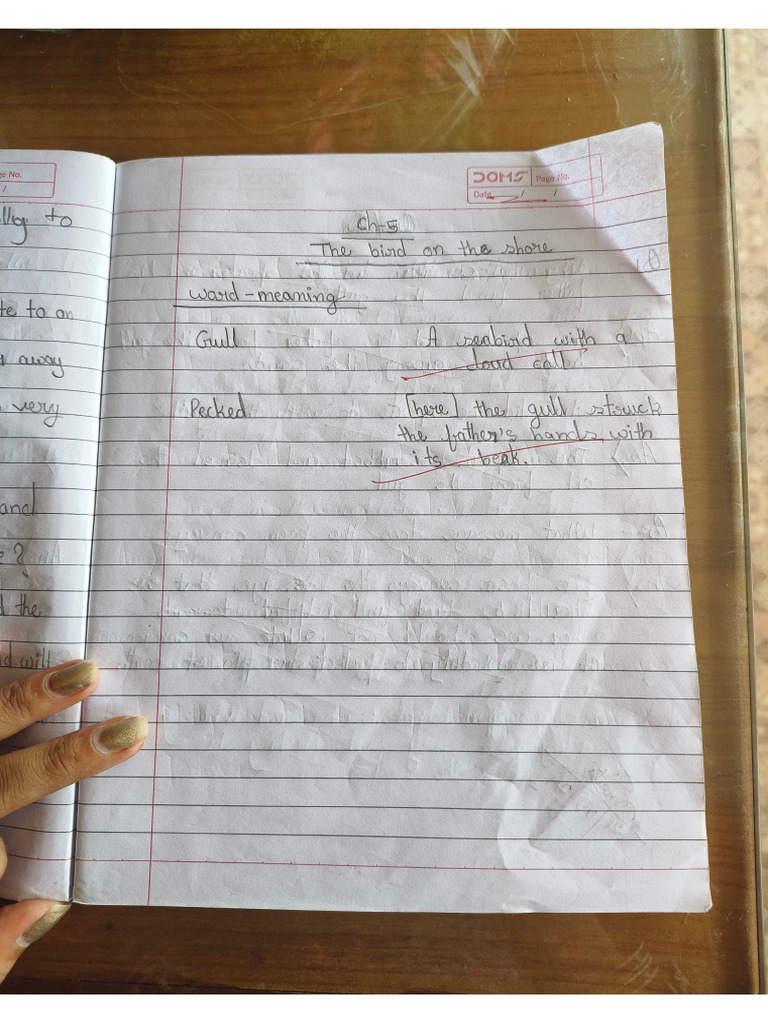 ge No.
/
lly to
te to an
away
very
and
e?
d the
d will
DOMS Page No.
Date / /
Ch-5
The bird on the shore
word-meaning
Gull A seabird with a
loud call
Pecked [here] the gull struck
the father's hands with
its beak.